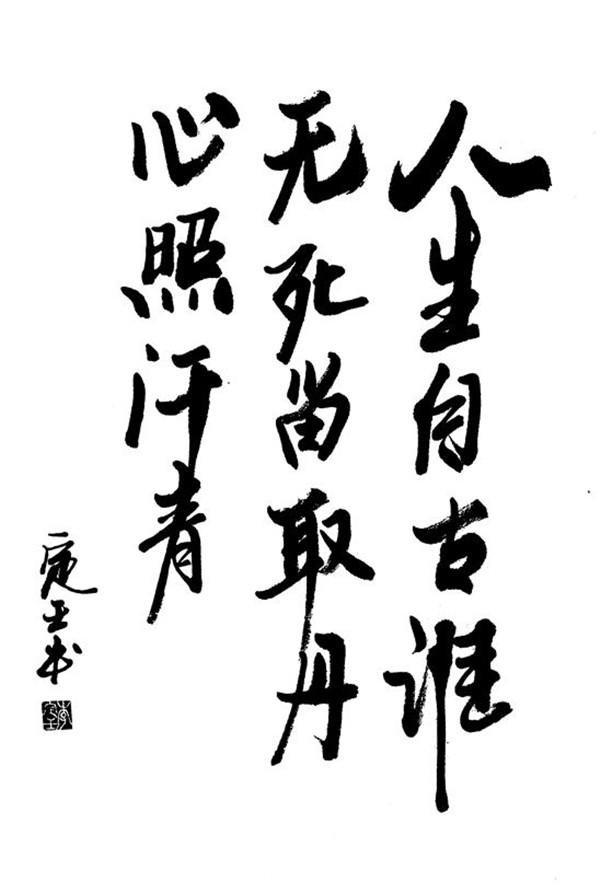 人生自古谁
无死留取丹
心照汗青